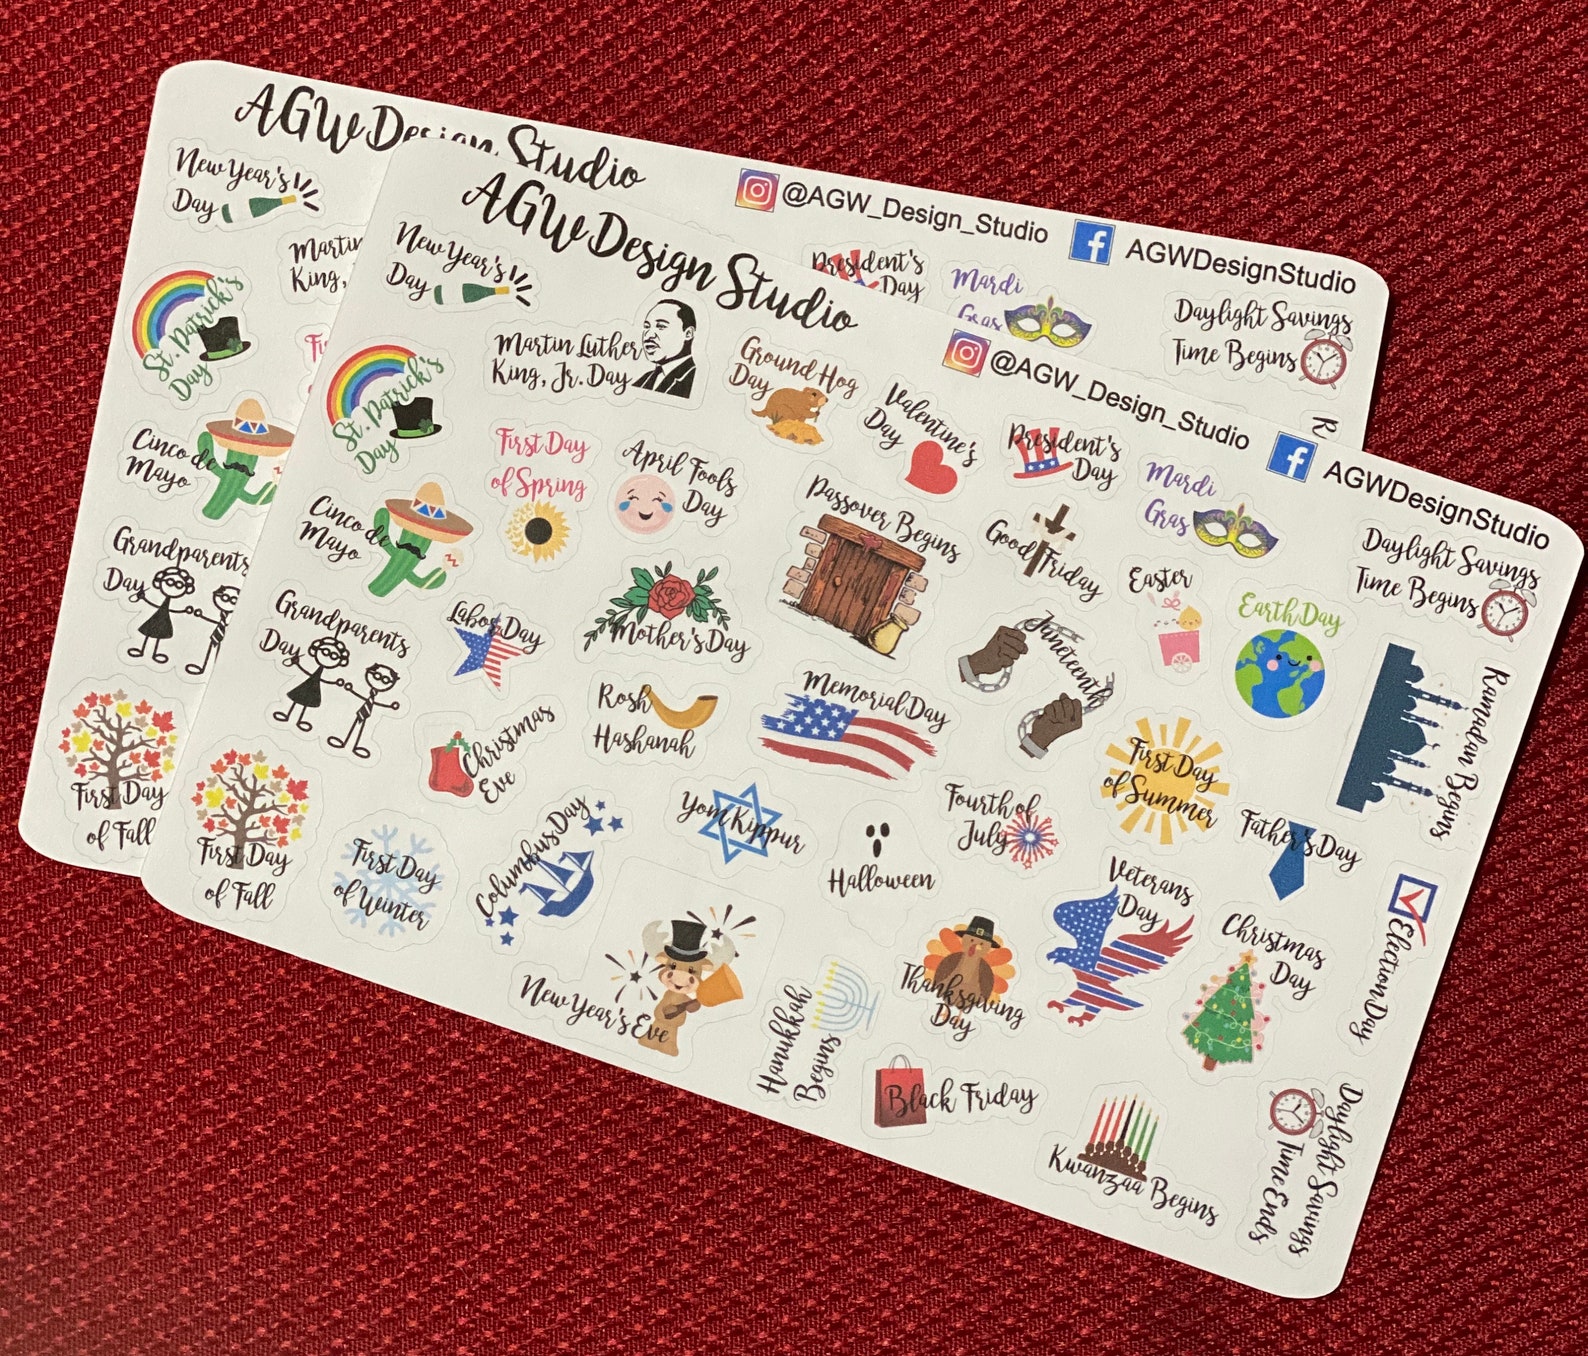 AGW Design Studio
@AGW_Design_Studio
AGWDesignStudio
New Year's
Day
Martin
King,
President's
Day
Mardi
Gras
Daylight Savings
Time Begins
St. Patrick's
Day
Cinco de
Mayo
Grandparents
Day
First Day
of Fall
AGW Design Studio
@AGW_Design_Studio
AGWDesignStudio
New Year's
Day
Martin Luther
King, Jr. Day
Ground Hog
Day
Valentine's
Day
President's
Day
Mardi
Gras
Daylight Savings
Time Begins
St. Patrick's
Day
First Day
of Spring
April Fools
Day
Passover Begins
Good Friday
Easter
Earth Day
Ramadan Begins
Cinco de
Mayo
Grandparents
Day
Labor Day
Mother's Day
Juneteenth
Memorial Day
First Day
of Summer
Father's Day
Rosh
Hashanah
Christmas
Eve
Fourth of
July
Yom Kippur
Columbus Day
First Day
of Fall
First Day
of Winter
Halloween
Veterans
Day
Election Day
Christmas
Day
Thanksgiving
Day
New Year's Eve
Hanukkah
Begins
Black Friday
Kwanzaa Begins
Daylight Savings
Time Ends